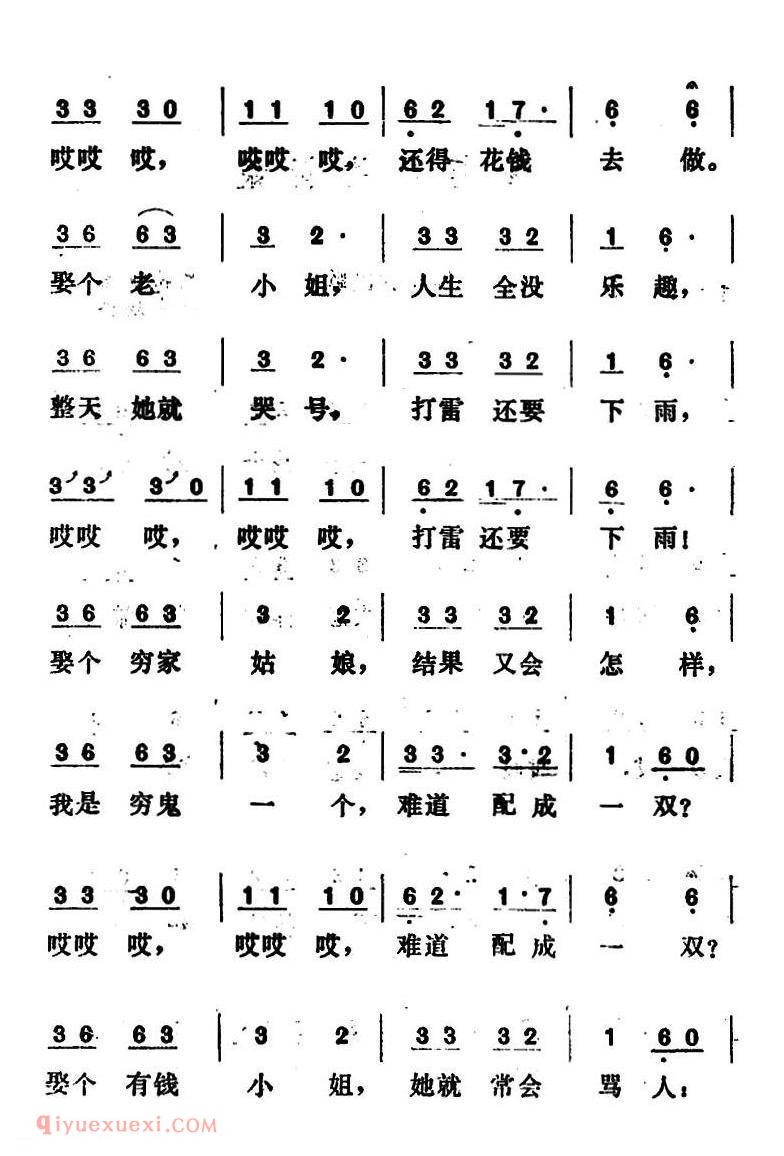 3 3 3 0 | 1 1 1 0 | 6 2 1 7 · | 6 6 |
哎哎 哎， 哎哎 哎， 还得 花钱 去 做。
3 6 6 3 | 3 2 · | 3 3 3 2 | 1 6 · |
娶个 老 小 姐， 人生 全没 乐 趣，
3 6 6 3 | 3 2 · | 3 3 3 2 | 1 6 · |
整天 她就 哭 号。 打雷 还要 下 雨，
3 3 3 0 | 1 1 1 0 | 6 2 1 7 · | 6 6 · |
哎哎 哎， 哎哎 哎， 打雷 还要 下 雨！
3 6 6 3 | 3 2 | 3 3 3 2 | 1 6 |
娶个 穷家 姑 娘， 结果 又会 怎 样，
3 6 6 3 | 3 2 | 3 3 · 3 · 2 | 1 6 0 |
我是 穷鬼 一 个， 难道 配成 一 双？
3 3 3 0 | 1 1 1 0 | 6 2 · 1 · 7 | 6 6 |
哎哎 哎， 哎哎 哎， 难道 配成 一 双？
3 6 6 3 | 3 2 | 3 3 3 2 | 1 6 0 |
娶个 有钱 小 姐， 她就 常会 骂 人：
qiyuexuexi.com